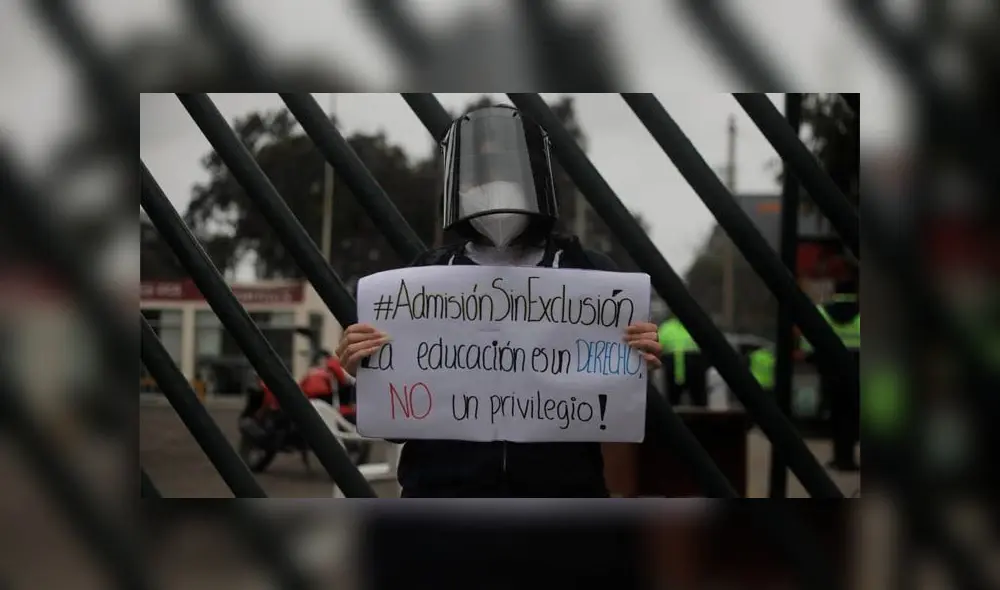 #AdmisiónSinExclusión
La educación es un DERECHO,
NO un privilegio!